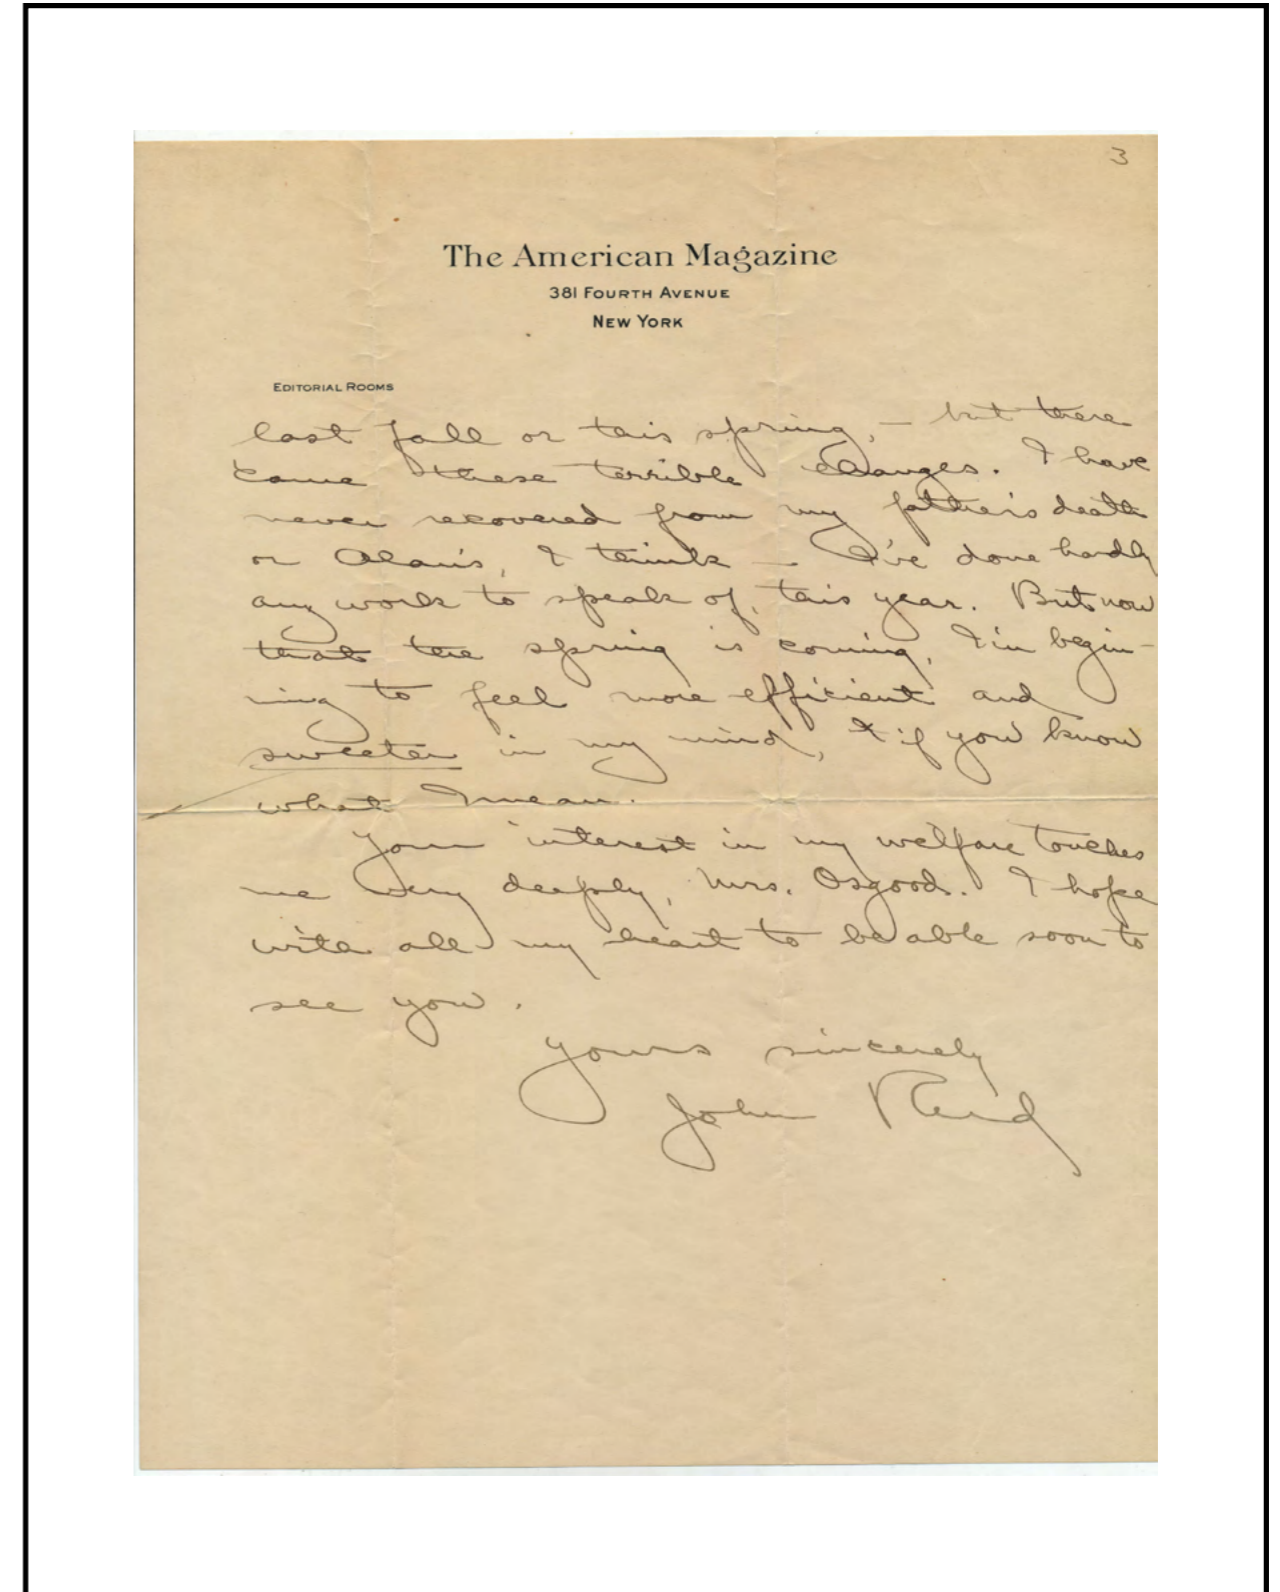 3
The American Magazine
381 FOURTH AVENUE
NEW YORK
EDITORIAL ROOMS
last fall or this spring, — but there
came these terrible changes. I have
never recovered from my father's death
or Alan's, I think — I've done hardly
any work to speak of, this year. But now
that the spring is coming, I'm begin-
ning to feel more efficient and
sweeter in my mind, if you know
what I mean.
Your interest in my welfare touches
me very deeply, Mrs. Osgood. I hope
with all my heart to be able soon to
see you.
Yours sincerely
John Reed